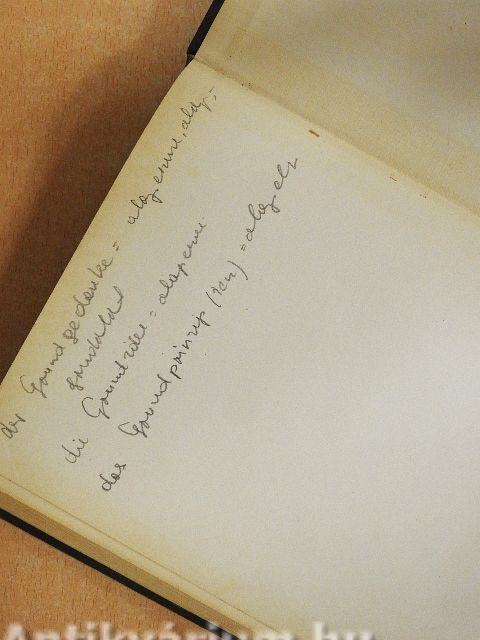 der Grundgedanke = alapeszme, alap-
gondolat
die Grundidee = alapeszme.
das Grundprinzip (ien) = alapelv
Antikvárium.hu